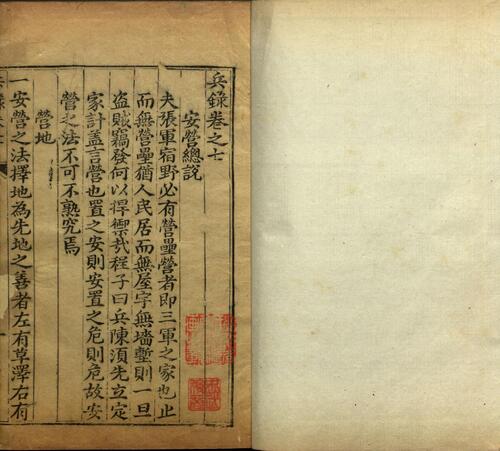 兵錄卷之七
安營總說
夫張軍宿野必有營壘營者即三軍之家也止
而無營壘猶人民居而無屋宇無墻塹則一旦
盗賊竊發何以捍禦哉程子曰兵陳須先立定
家計盖言營也置之安則安置之危則危故安
營之法不可不熟究焉
營地
一安營之法擇地為先地之善者左有草澤右有